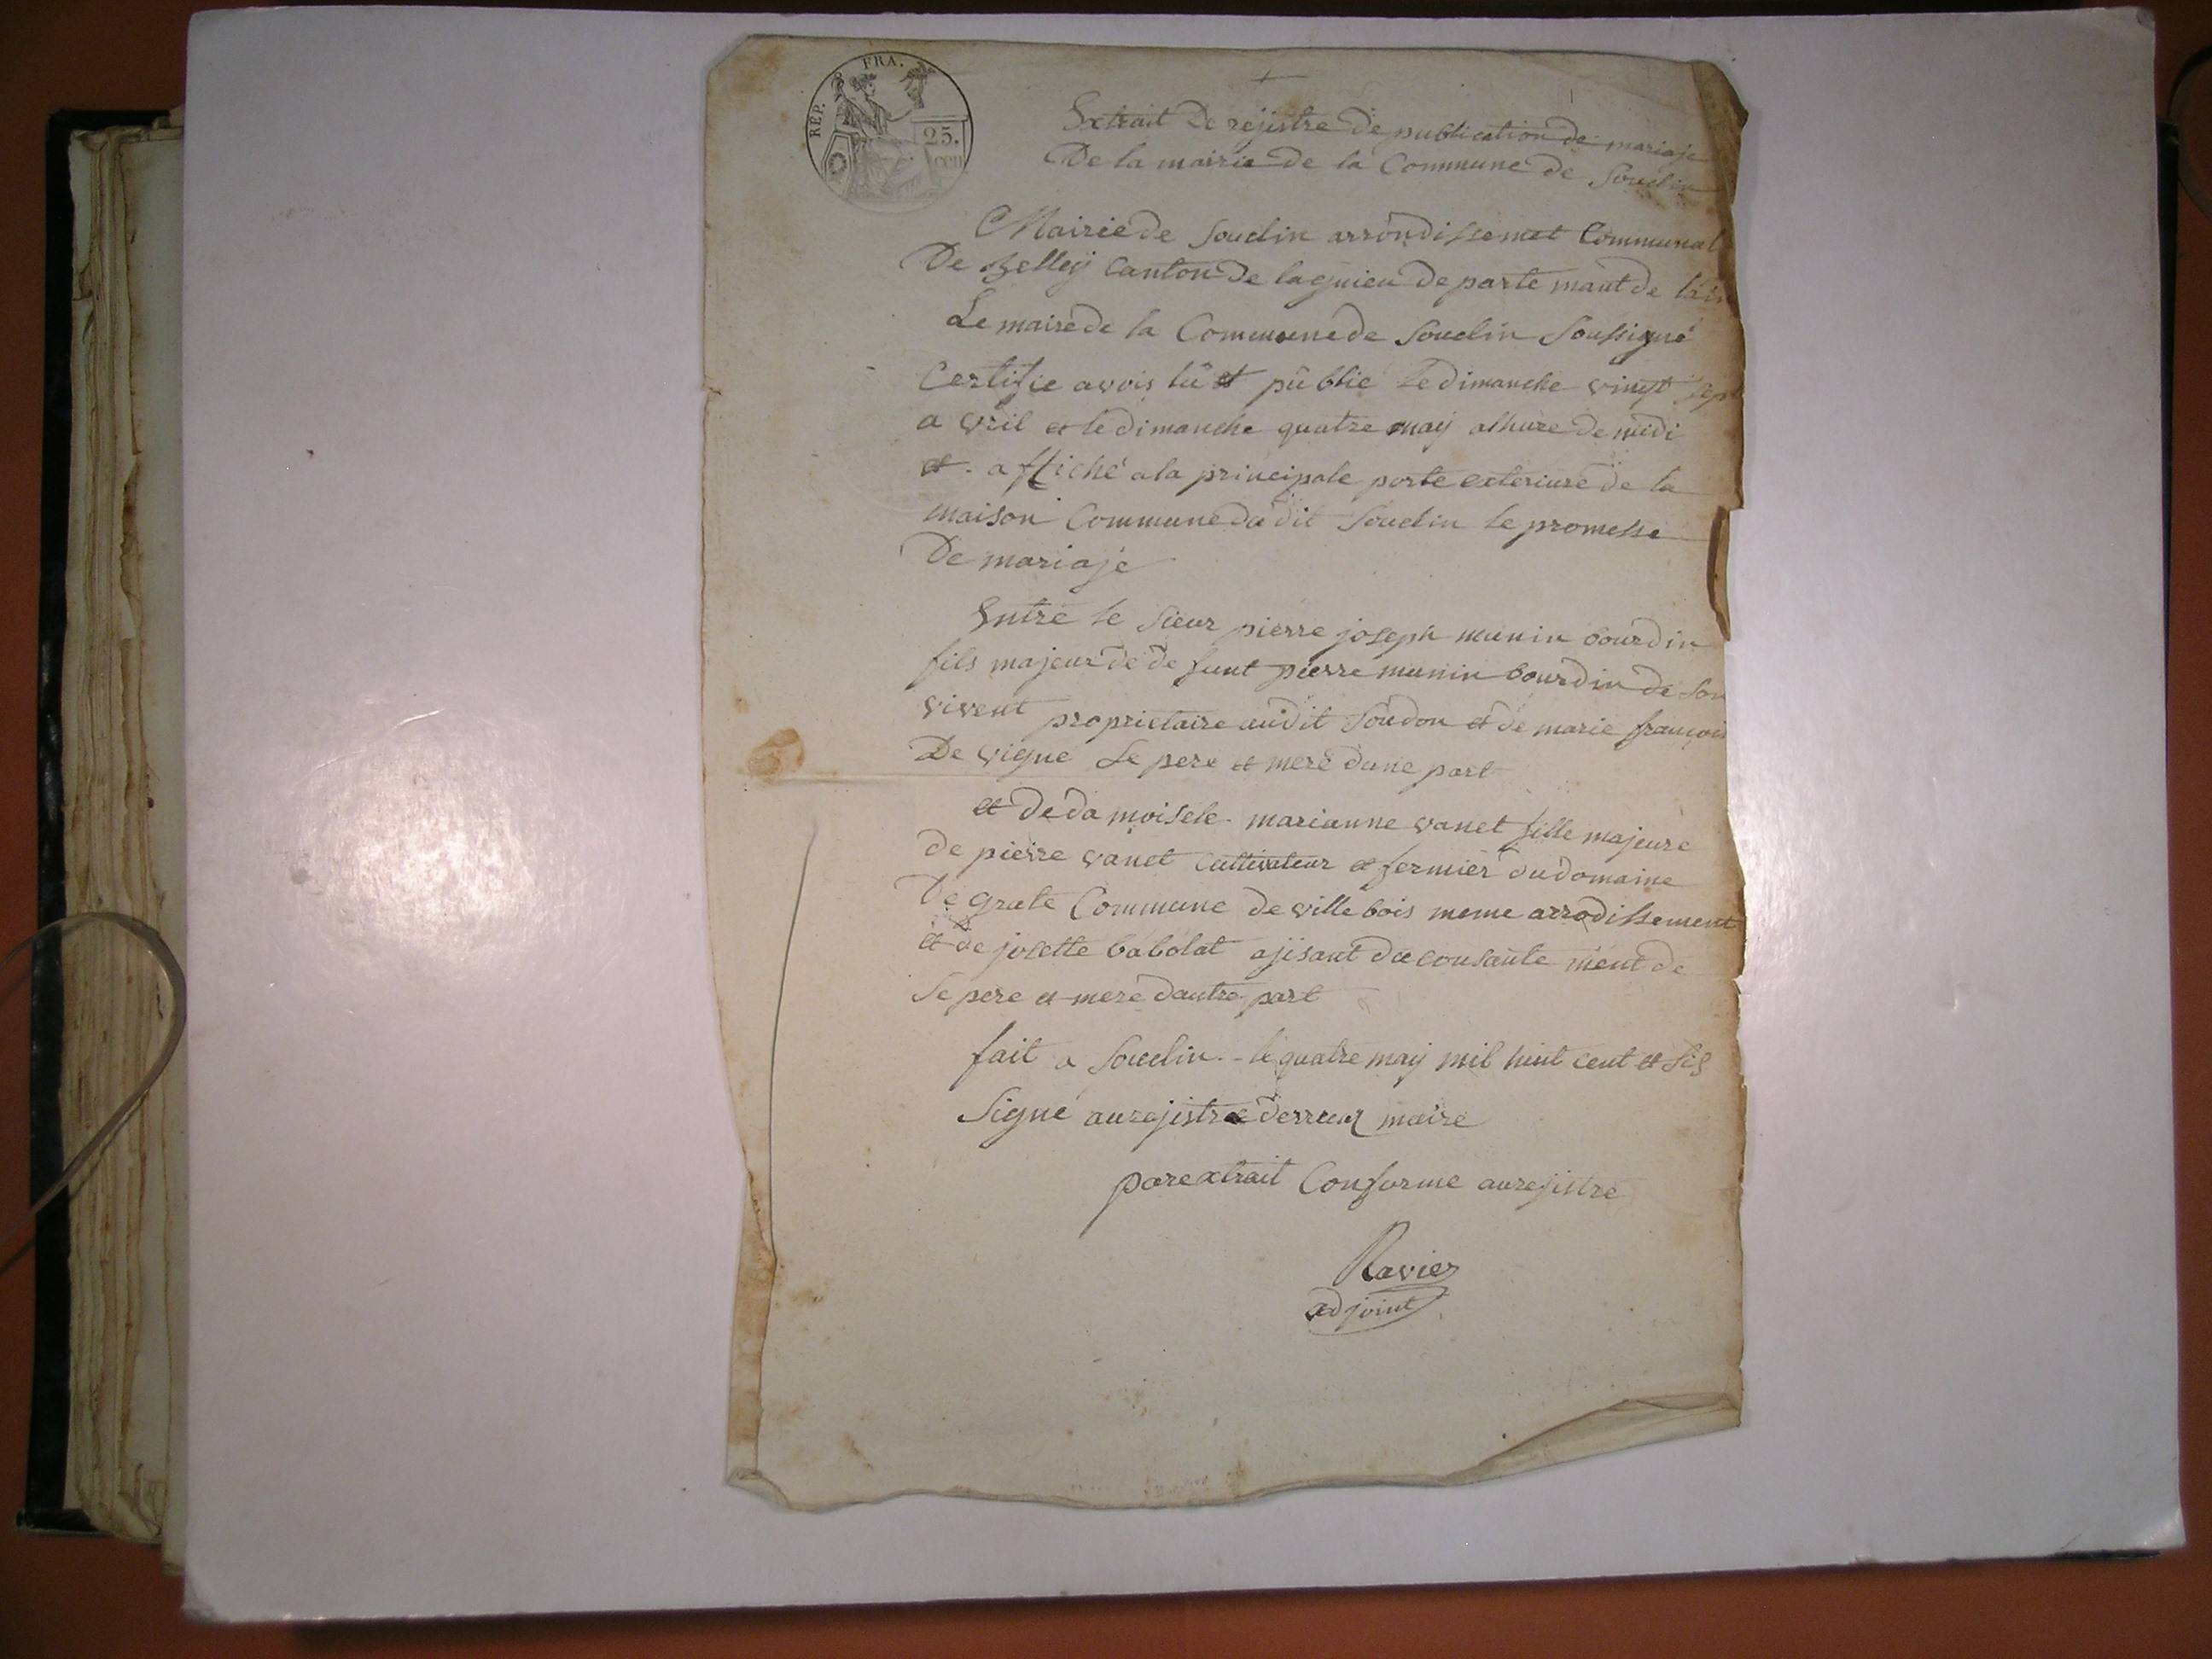 REP. FRA.
25.
cen
Extrait de rejistre de publication de mariaje
De la mairie de la Commune de Souclin
Mairie de Souclin arrondissemet Communal
De Belley Canton de lagnieu de parte mant de lain
Le maire de la Commune de Souclin Soussigné
Certifie avois lû et pûblié le dimanche vingt sept
a vril et le dimanche quatre may alhure de midi
et affiché a la principale porte exteriure de la
maison Commune du dit Souclin le promesse
De mariaje
Entre le sieur pierre joseph munin bourdin
fils majeur de de funt pierre munin bourdin de son
vivent proprietaire audit Soudon et de marie françois
De vigne Se pere et mere dune part
et de da moisele marianne vanet fille majeure
de pierre vanet Cultivateur et fermier du domaine
De grate Commune de ville bois meme arrodissement
et de josette babolat ajisant du consante ment de
Se pere et mere dautre part
fait a Souclin le quatre may mil huit cent et sis
Signé au rejistre maire
par extrait Conforme au rejistre
Ravier
adjoint